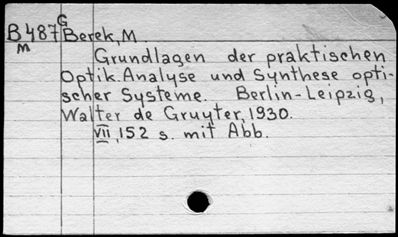 G
B487 Berek, M.
M
Grundlagen der praktischen
Optik. Analyse und Synthese opti-
scher Systeme. Berlin-Leipzig,
Walter de Gruyter, 1930.
VII, 152 s. mit Abb.